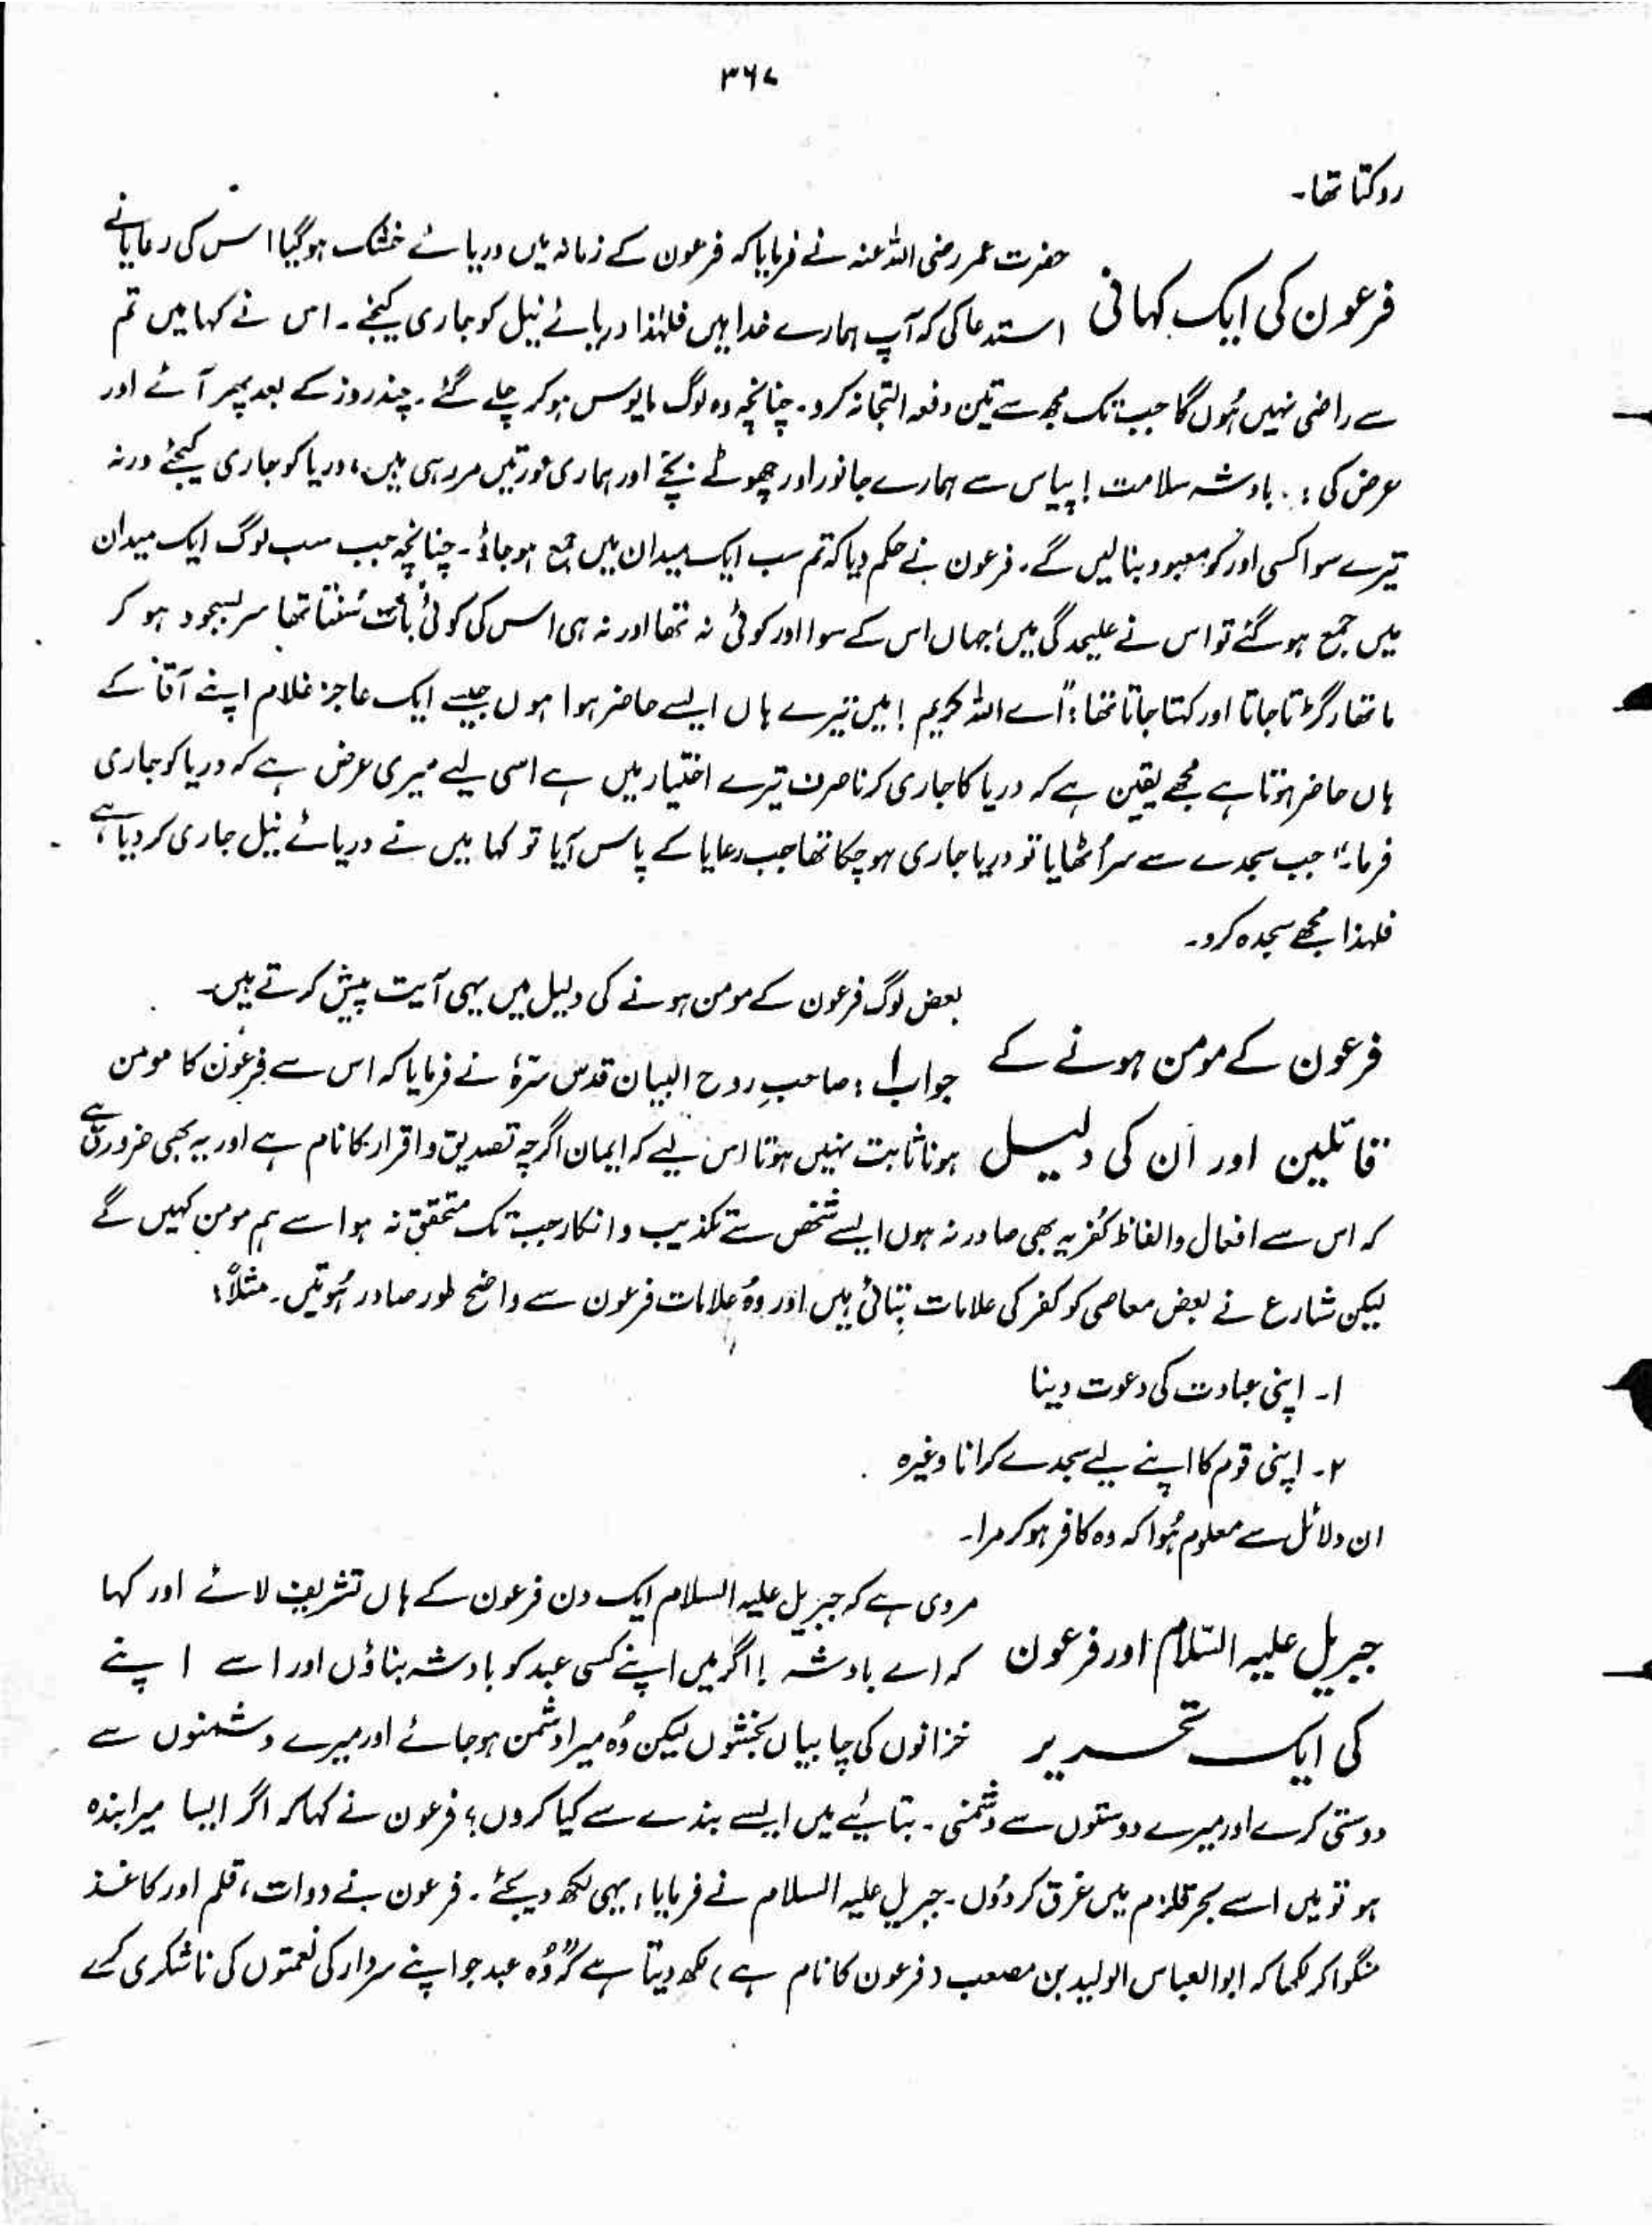 ۳۶۷
روکتا تھا۔
حضرت عمر رضی اللہ عنہ نے فرمایا کہ فرعون کے زمانہ میں دریائے خشک ہوگیا اس کی رعایا نے
فرعون کی ایک کہانی
استدعا کی کہ آپ ہمارے خدا ہیں فلہٰذا دریائے نیل کو جاری کیجئے۔ اس نے کہا میں تم
سے راضی نہیں ہُوں گا جب تک مجھ سے تین دفعہ التجا نہ کرو۔ چنانچہ وہ لوگ مایوس ہو کر چلے گئے۔ چند روز کے بعد پھر آئے اور
عرض کی: بادشہ سلامت! پیاس سے ہمارے جانور اور چھوٹے بچے اور ہماری عورتیں مر رہی ہیں، دریا کو جاری کیجئے ورنہ
تیرے سوا کسی اور کو معبود بنا لیں گے۔ فرعون نے حکم دیا کہ تم سب ایک میدان میں جمع ہو جاؤ۔ چنانچہ جب سب لوگ ایک میدان
میں جمع ہو گئے تو اس نے علیحدگی میں، جہاں اس کے سوا اور کوئی نہ تھا اور نہ ہی اس کی کوئی بات سُنتا تھا سر بسجود ہو کر
ماتھا رگڑتا جاتا اور کہتا جاتا تھا: "اے اللہ کریم! میں تیرے ہاں ایسے حاضر ہوا ہوں جیسے ایک عاجز غلام اپنے آقا کے
ہاں حاضر ہوتا ہے مجھے یقین ہے کہ دریا کا جاری کرنا صرف تیرے اختیار میں ہے اسی لیے میری عرض ہے کہ دریا کو جاری
فرما۔" جب سجدے سے سر اُٹھایا تو دریا جاری ہو چکا تھا جب رعایا کے پاس آیا تو کہا میں نے دریائے نیل جاری کر دیا ہے،
فلہذا مجھے سجدہ کرو۔
بعض لوگ فرعون کے مومن ہونے کی دلیل میں یہی آیت پیش کرتے ہیں۔
فرعون کے مومن ہونے کے
جواب ا: صاحبِ روح البیان قدس سرہٗ نے فرمایا کہ اس سے فرعون کا مومن
قائلین اور ان کی دلیل
ہونا ثابت نہیں ہوتا اس لیے کہ ایمان اگرچہ تصدیق و اقرار کا نام ہے اور یہ بھی ضروری ہے
کہ اس سے افعال و الفاظ کفریہ بھی صادر نہ ہوں ایسے شخص سے تکذیب و انکار جب تک متحقق نہ ہو اسے ہم مومن کہیں گے
لیکن شارع نے بعض معاصی کو کفر کی علامات بتائی ہیں اور وُہ علامات فرعون سے واضح طور صادر ہُوئیں۔ مثلاً:
۱۔ اپنی عبادت کی دعوت دینا
۲۔ اپنی قوم کا اپنے لیے سجدے کرانا وغیرہ
ان دلائل سے معلوم ہُوا کہ وہ کافر ہو کر مرا۔
مروی ہے کہ جبریل علیہ السلام ایک دن فرعون کے ہاں تشریف لائے اور کہا
جبریل علیہ السّلام اور فرعون
کہ اے بادشہ! اگر میں اپنے کسی عبد کو بادشہ بناؤں اور اسے اپنے
کی ایک تحریر
خزانوں کی چابیاں بخشوں لیکن وُہ میرا دشمن ہو جائے اور میرے دشمنوں سے
دوستی کرے اور میرے دوستوں سے دشمنی۔ بتائیے میں ایسے بندے سے کیا کروں؟ فرعون نے کہا کہ اگر ایسا میرا بندہ
ہو تو میں اسے بحر قلزم میں غرق کر دُوں۔ جبریل علیہ السلام نے فرمایا، یہی لکھ دیجئے۔ فرعون نے دوات، قلم اور کاغذ
منگوا کر لکھا کہ ابوالعباس الولید بن مصعب (فرعون کا نام ہے) لکھ دیتا ہے کہ "وُہ عبد جو اپنے سردار کی نعمتوں کی ناشکری کے